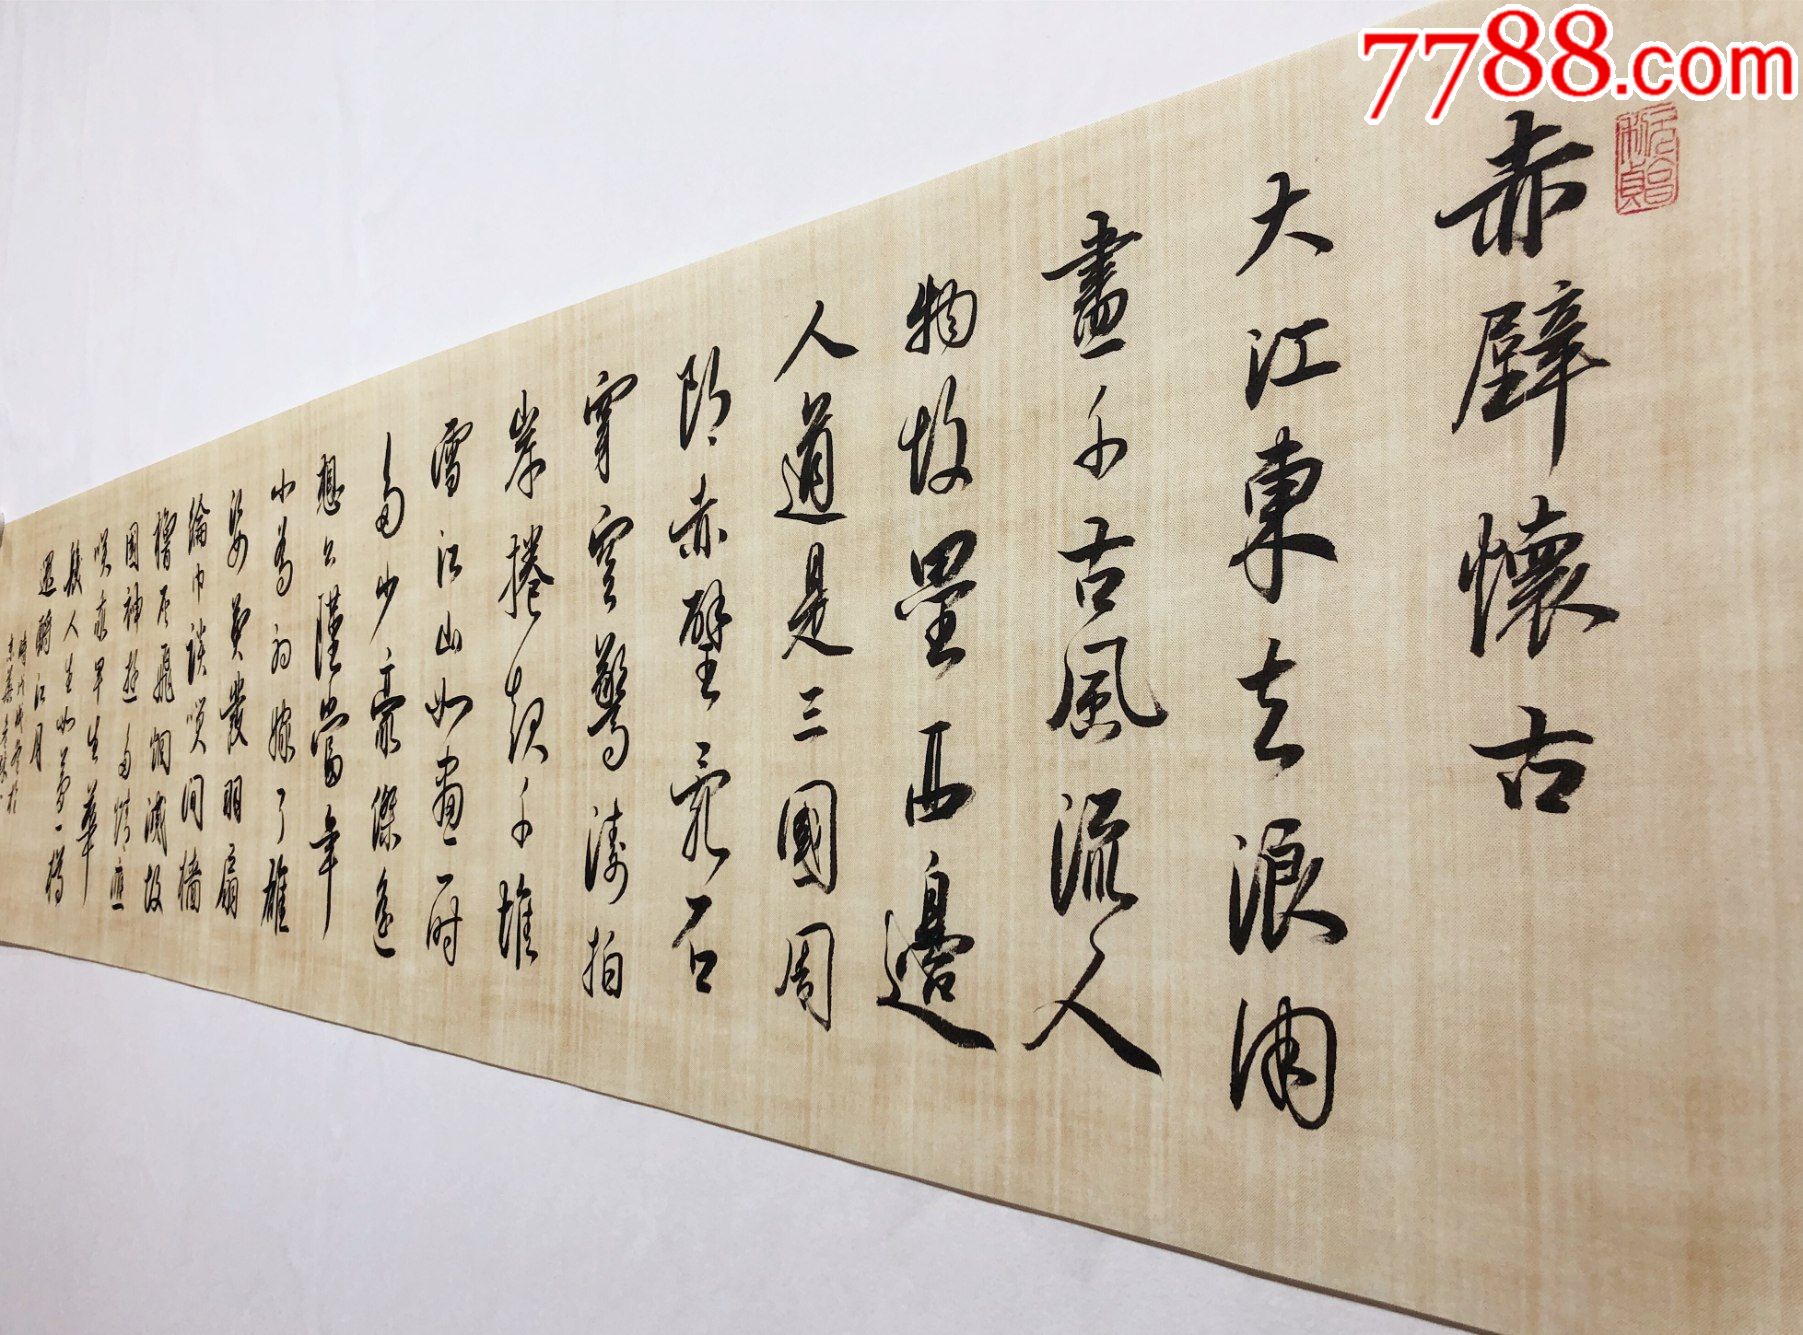 7788.com
元亨利貞
赤壁懷古
大江東去浪淘
盡千古風流人
物故壘西邊
人道是三國周
郎赤壁亂石
穿空驚濤拍
岸捲起千堆
雪江山如畫一時
多少豪傑遙
想公瑾當年
小喬初嫁了雄
姿英發羽扇
綸巾談笑間檣
櫓灰飛烟滅故
國神遊多情應
笑我早生華
髮人生如夢一樽
還酹江月